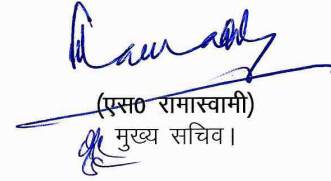 (एस0 रामास्वामी)
मुख्य सचिव।